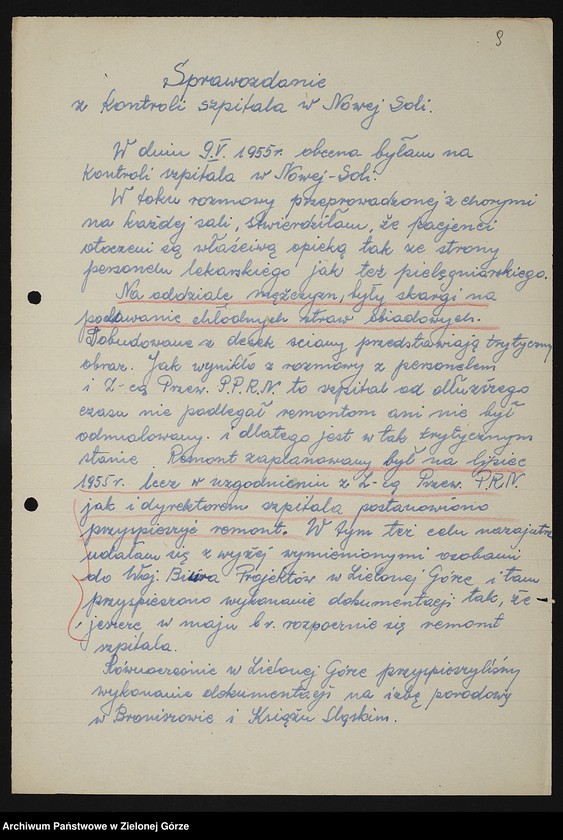 9
Sprawozdanie
z kontroli szpitala w Nowej Soli.
W dniu 9.V. 1955r. obecna byłam na
kontroli szpitala w Nowej-Soli.
W toku rozmowy przeprowadzonej z chorymi
na każdej sali, stwierdziłam, że pacjenci
otoczeni są właściwą opieką tak ze strony
personelu lekarskiego jak też pielęgniarskiego.
Na oddziale mężczyzn, były skargi na
podawanie chłodnych straw obiadowych.
Dobudowane z desek ściany przedstawiają krytyczny
obraz. Jak wynikło z rozmowy z personelem
i Z-cą Przew. P.P.R.N. to szpital od dłuższego
czasu nie podlegał remontom ani nie był
odmalowany. i dlatego jest w tak krytycznym
stanie. Remont zaplanowany był na lipiec
1955r. lecz w uzgodnieniu z Z-cą Przew. P.R.N.
jak i dyrektorem szpitala postanowiono
przyspieszyć remont. W tym też celu nazajutrz
udałam się z wyżej wymienionymi osobami
do Woj. Biura Projektów w Zielonej Górze i tam
przyspieszono wykonanie dokumentacji tak, że
jeszcze w maju b.r. rozpocznie się remont
szpitala.
Równocześnie w Zielonej Górze przyspieszyliśmy
wykonanie dokumentacji na izbę porodową
w Broniszowie i Książu Śląskim.
Archiwum Państwowe w Zielonej Górze